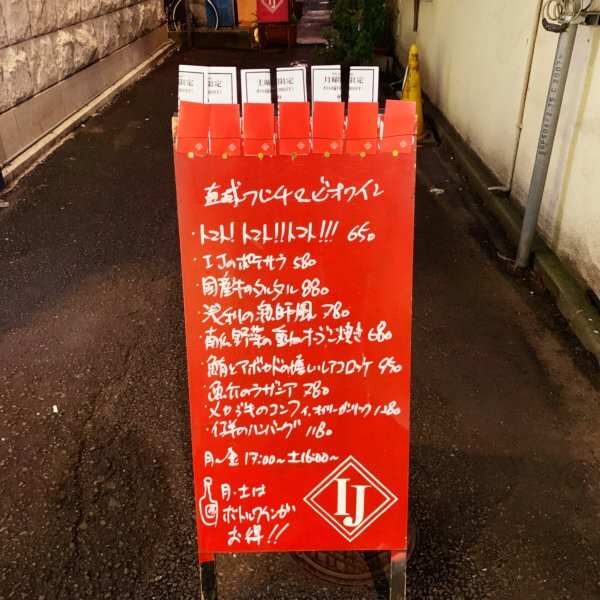 土曜 限定
月曜 限定
直球フレンチとビオワイン
・トマト!トマト!!トマト!!! 650
・IJのポテサラ 580
・国産牛のタルタル 880
・浅利の漁師風 780
野菜の重ねオーブン焼き 680
・鮪とアボカドの懐いレアコロッケ 950
・魚介のラザニア 780
・メカジキのコンフィ、オイリーガーリック 1280
・仔羊のハンバーグ 1180
月〜金 17:00〜土16:00〜
月・土は
ボトルワインが
お得!!
IJ